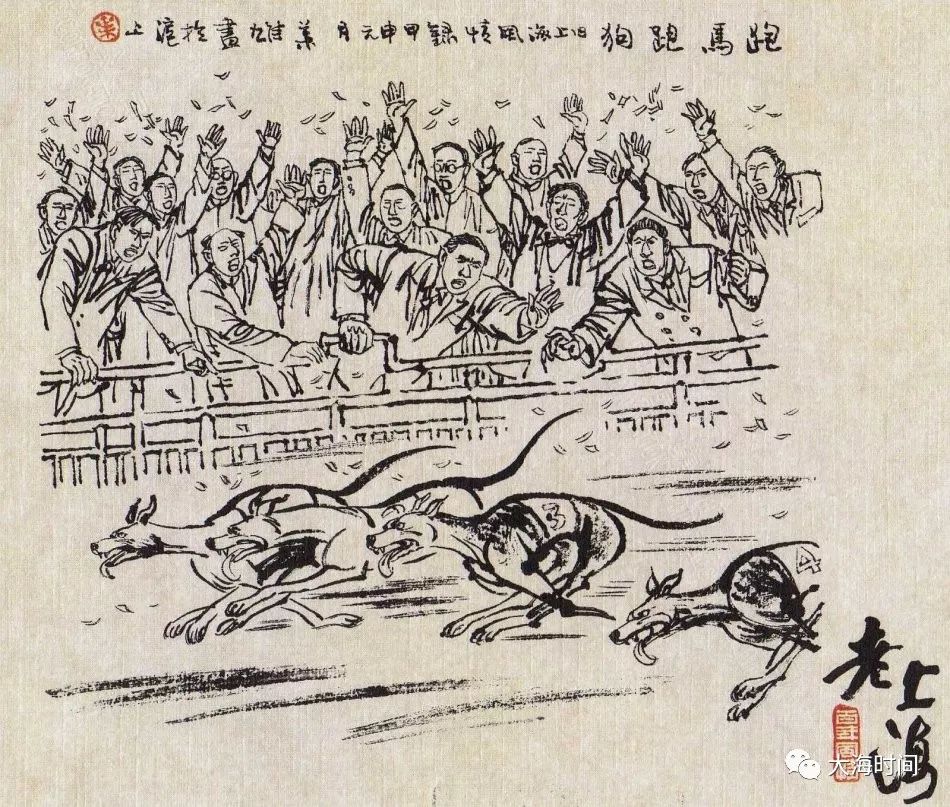 跑馬跑狗 旧上海風情録甲申元月 葉雄畫於滬上
葉
3
4
老上海
大海时间